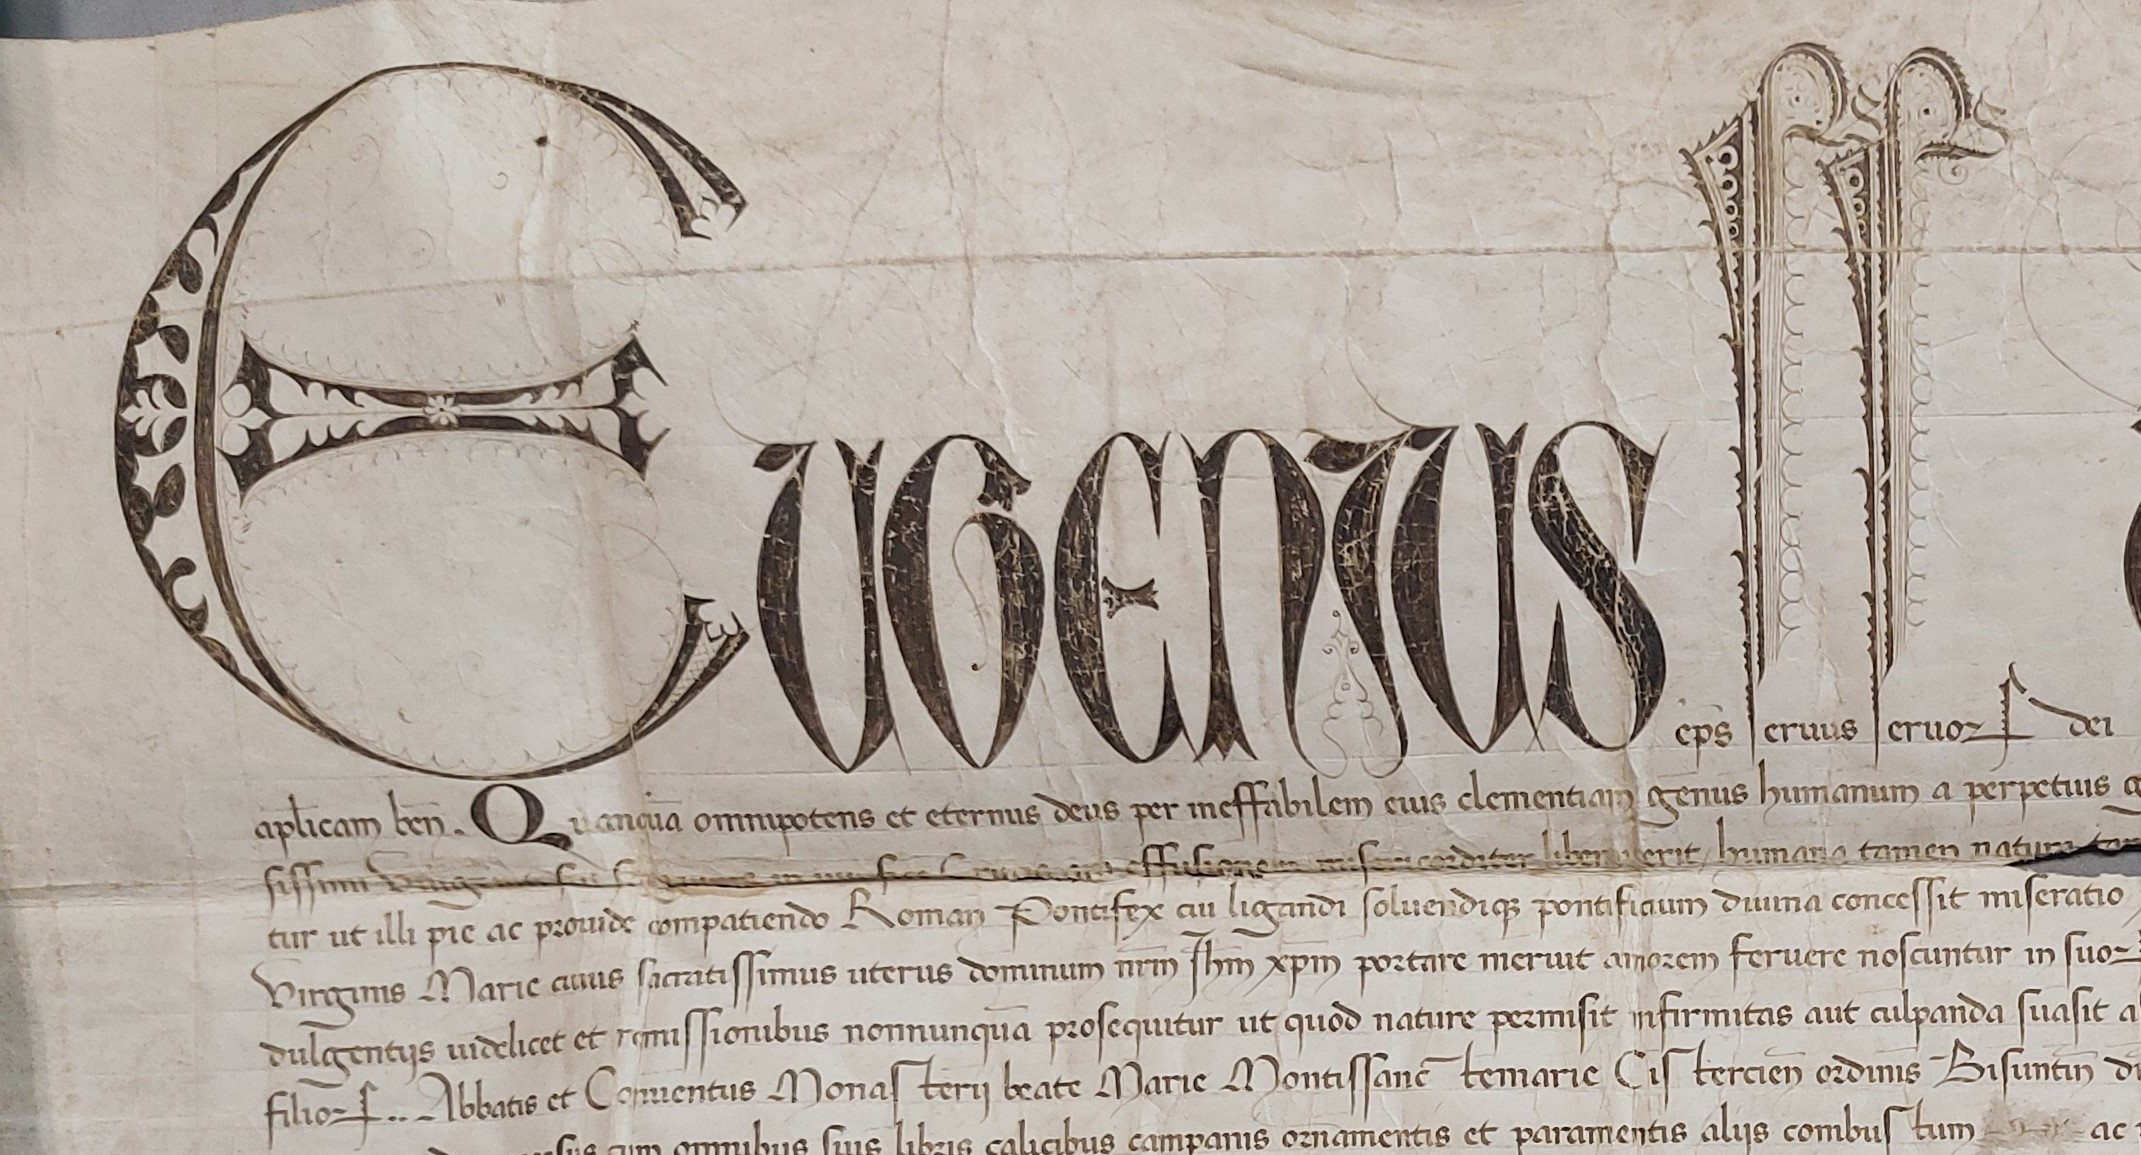 Eugenius ep̄s seruus seruoꝝ dei
apl̄icam ben̄. Quanquā omnipotens et eternus deus per ineffabilem eius clementiam genus humanum a perpetuis
sissimi effusionem misericorditer liberauerit, humana tamen natura
tur ut illi pie ac prouide compatiendo Roman Pontifex cui ligandi soluendiqꝫ pontificium diuina concessit miseratio
Virginis Marie cuius sacratissimus uterus dominum nr̄m Jhm̄ xp̄m portare meruit amorem feruere noscuntur in suoꝝ
dulgentijs uidelicet et remissionibus nonnunquā prosequitur ut quod nature permisit infirmitas aut culpanda suasit
filioꝝ .. Abbatis et Conuentus Monasterij beate Marie Montissanc̄temarie Cistercien̄ ordinis Bisuntin̄
cum omnibus suis libris calicibus campanis ornamentis et paramentis aliis combustum ac